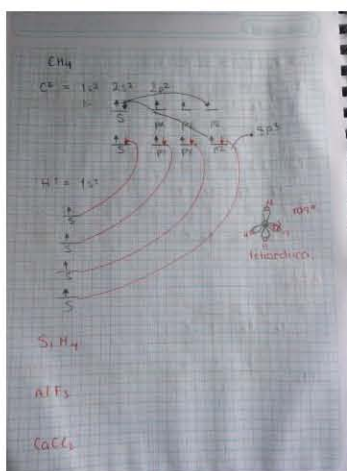 CH4
C6 = 1s2 2s2 2p2
S px py pz
S px py pz sp3
H1 = 1s1
S
S
109°
S
Tetraédrica
S
SiH4
AlF3
CaCl2